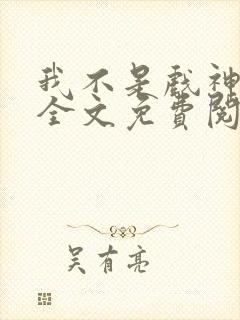 我不是戏神
全文免费阅
吴有亮